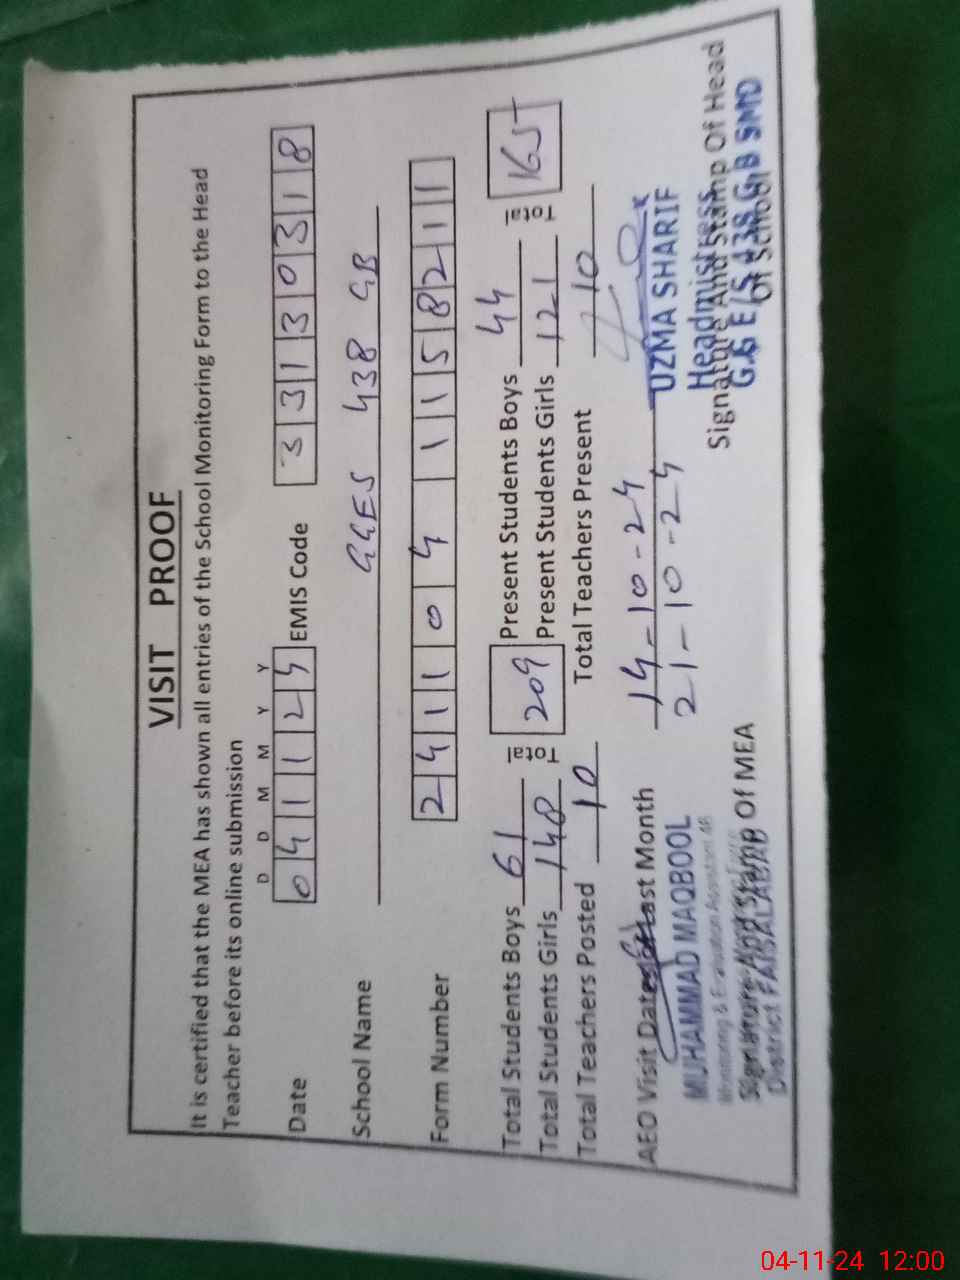 VISIT PROOF
It is certified that the MEA has shown all entries of the School Monitoring Form to the Head
Teacher before its online submission
D D M M Y Y
Date 041124 EMIS Code 33130318
School Name GGES 438 GB
Form Number 2411041158211
Total Students Boys 61 Total 209 Present Students Boys 44 Total 165
Total Students Girls 148 Present Students Girls 121
Total Teachers Posted 10 Total Teachers Present 10
AEO Visit Dates of Last Month 14-10-24
21-10-24
MUHAMMAD MAQBOOL
Monitoring & Evaluation Assistant 48
Signature And Stamp Of MEA
District FAISALABAD
UZMA SHARIF
Headmistress
Signature And Stamp Of Head
G.G E/S 438 G.B SMD
Of School
04-11-24 12:00